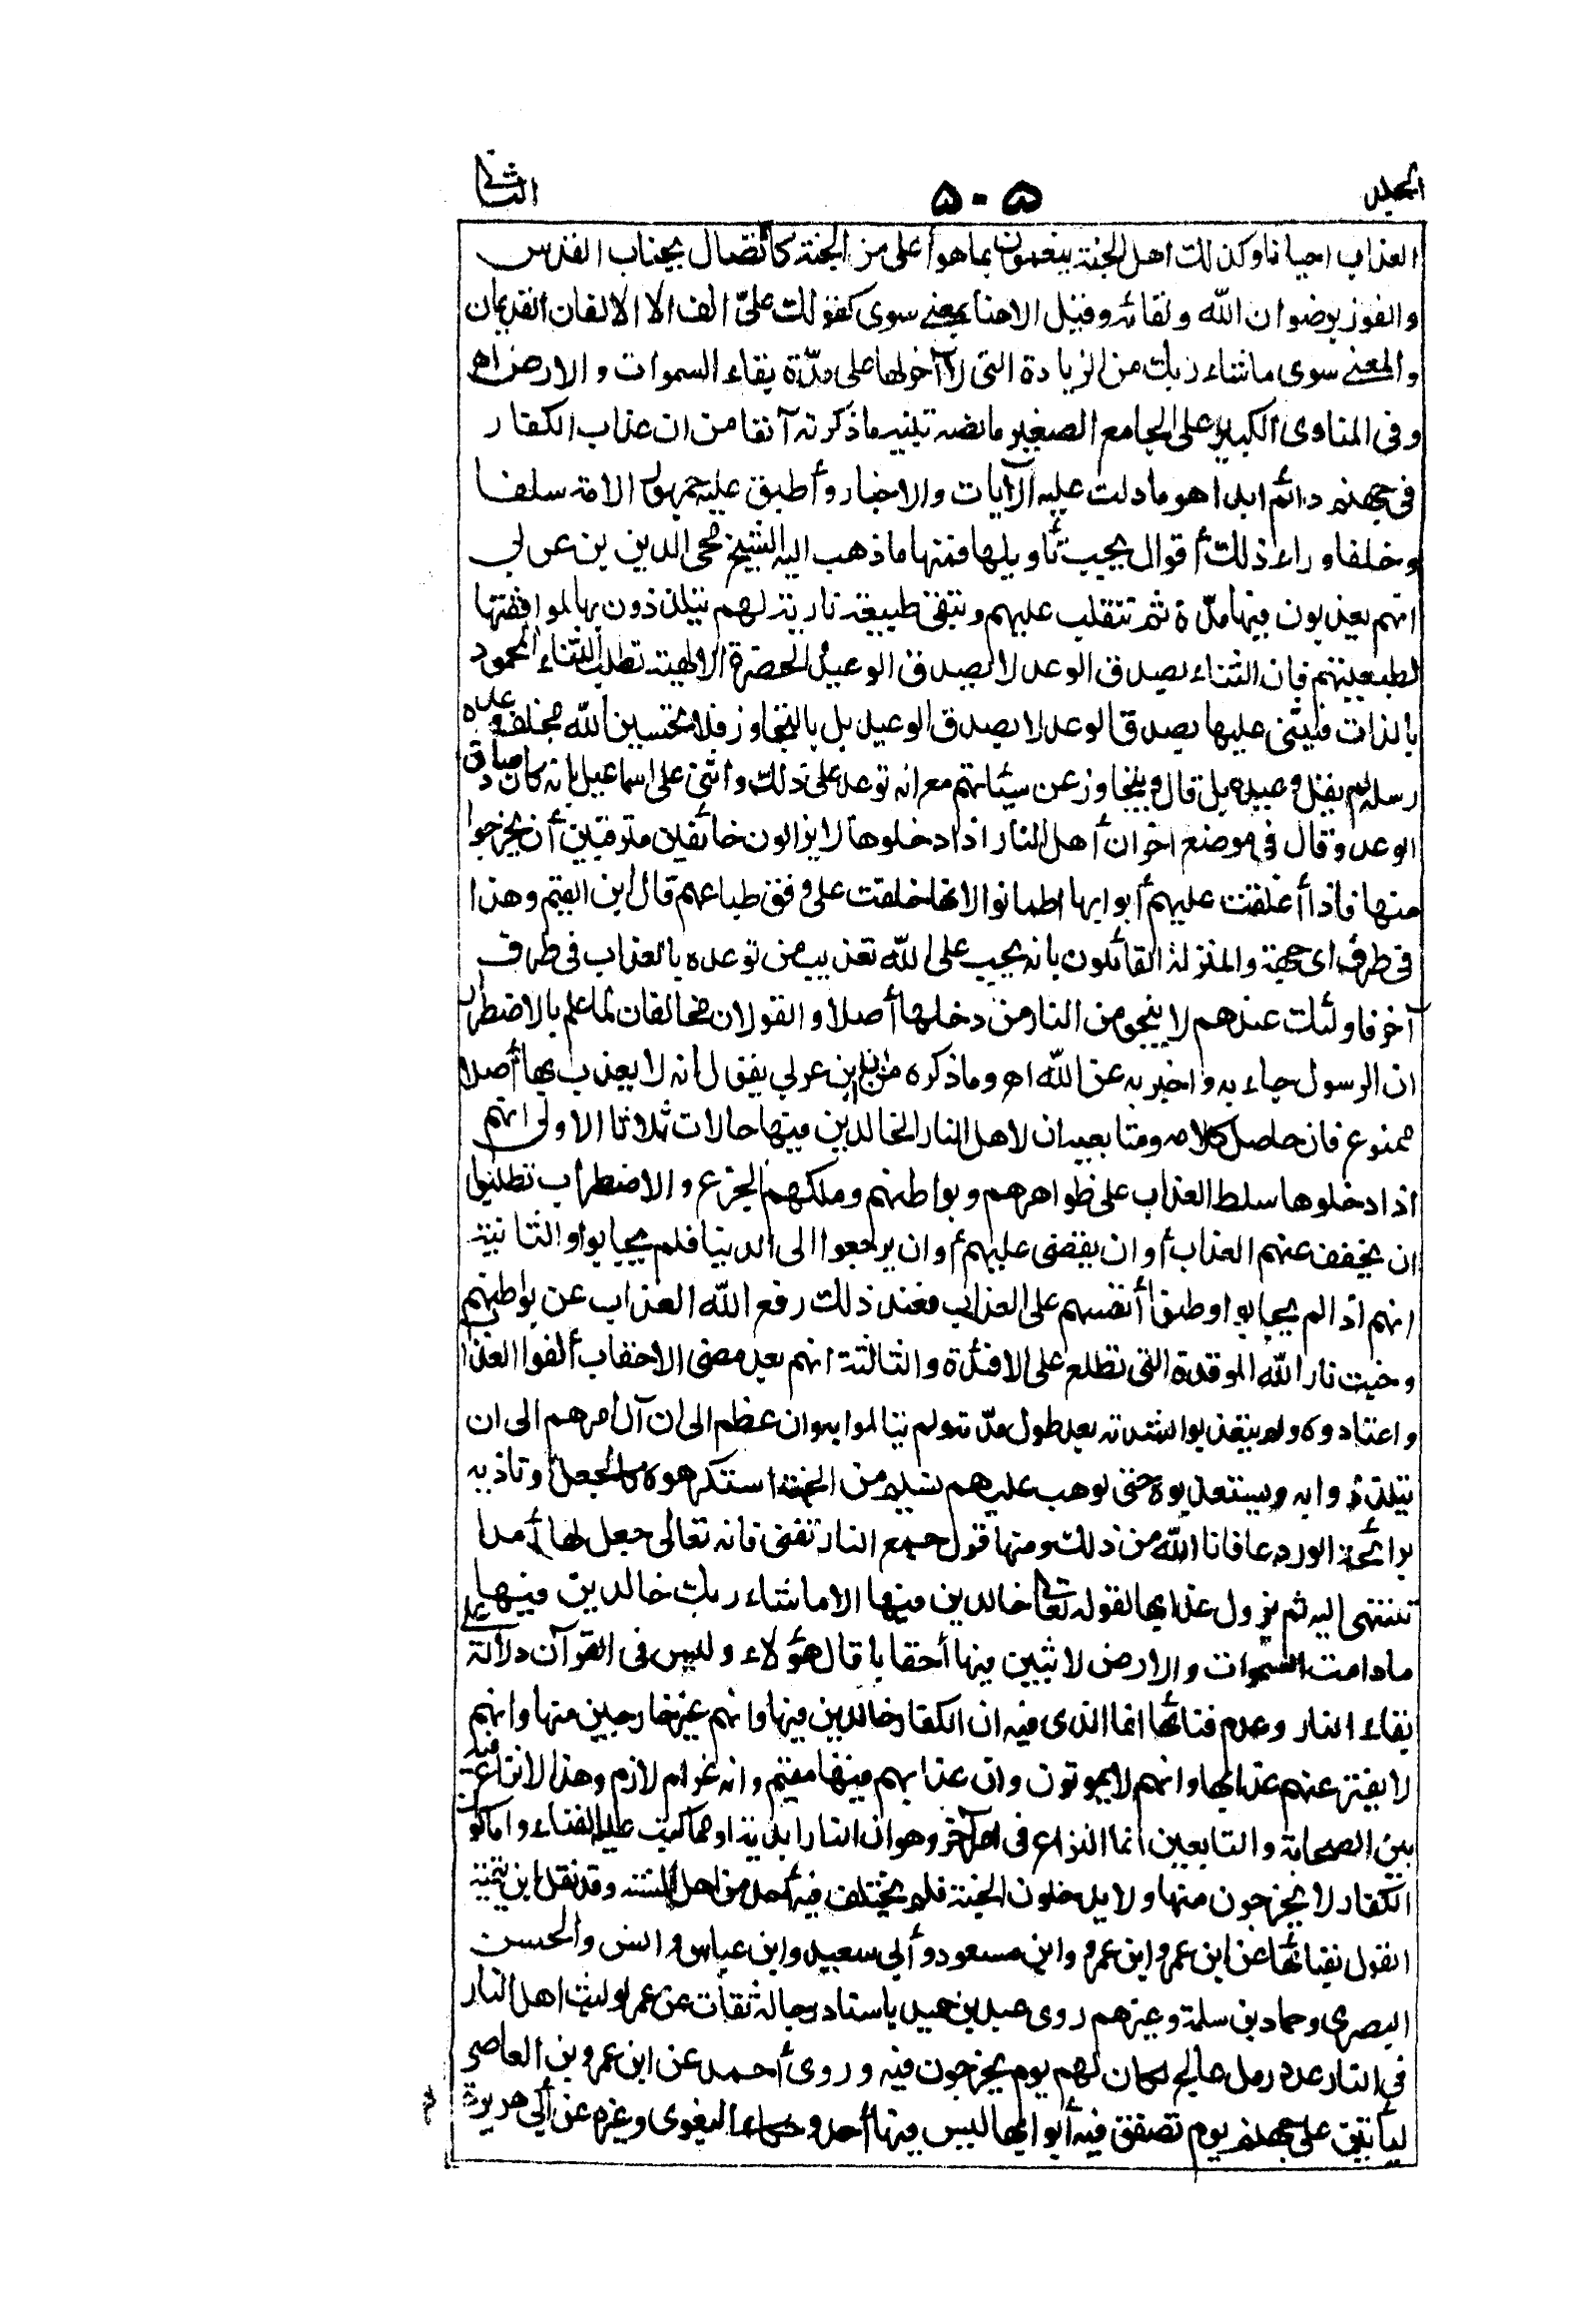 المجلد
۵۰۵
الثانی
العذاب احيانا وكذلك اهل الجنة ينعمون بما هو أعلى من الجنة كاتصال بجناب القدس
والفوز برضوان الله ولقائه وقيل الا هنا بمعنى سوى كقولك علىّ الف الا الالفان القديمان
والمعنى سوى ماشاء ربك من الزيادة التى لا آخر لها على مدّة بقاء السموات والارض اهـ
وفى المناوى الكبير على الجامع الصغير ما نصه تنبيه ما ذكرته آنفا من ان عذاب الكفار
فى جهنم دائم ابدا هو ما دلت عليه الآيات والاخبار وأطبق عليه جمهور الامة سلفا
وخلفا وراء ذلك أقوال يجب تأويلها فمنها ما ذهب اليه الشيخ محى الدين بن عربى
انهم يعذبون فيها مدّة ثم تنقلب عليهم وتبقى طبيعة نارية لهم يتلذذون بها لموافقتها
لطبعيتهم فان الثناء بصدق الوعد لا بصدق الوعيد الحضرة الالهية تطلب الثناء المحمود
بالذات فيثنى عليها بصدق الوعد لا بصدق الوعيد بل بالتجاوز فلا تحسبن الله مخلف وعده
رسله لم يقل وعيده بل قال ويتجاوز عن سيئاتهم مع انه توعد على ذلك واثنى على اسماعيل بانه كان صادق
الوعد وقال فى موضع اخر ان أهل النار اذا دخلوها لا يزالون خائفين مترقبين أن يخرجوا
منها فاذا أغلقت عليهم أبوابها اطمانوا لانها خلقت على وفق طباعهم قال ابن القيم وهذا
فى طرف اى جهة والمعتزلة القائلون بانه يجب على الله تعذيب من توعده بالعذاب فى طرف
آخر فاولئك عندهم لا ينجو من النار من دخلها أصلا والقولان مخالفان لما علم بالاضطرار
ان الرسول جاء به واخبر به عن الله اهـ وما ذكره من ان ابن عربى يقول انه لا يعذب بها أصلا
ممنوع فان حاصل كلامه ومتابعيه ان لاهل النار الخالدين فيها حالات ثلاثا الاولى انهم
اذا دخلوها سلط العذاب على ظواهرهم وبواطنهم وملكهم الجزع والاضطراب تطلبوا
ان يخفف عنهم العذاب أو ان يقضى عليهم أو ان يرجعوا الى الدنيا فلم يجابوا والثانية
انهم اذا لم يجابوا وطنوا أنفسهم على العذاب فعند ذلك رفع الله العذاب عن بواطنهم
وخبت نار الله الموقدة التى تطلع على الافئدة والثالثة انهم بعد مضى الاحقاب ألفوا العذاب
واعتادوه ولم يتعذبوا بشدته بعد طول مدّته ولم يتالموا به وان عظم الى ان آل أمرهم الى ان
يتلذذوا به ويستعذبوه حتى لو هب عليهم نسيم من الجنة استكرهوه كالجعل وتاذيه
برائحة الورد عافانا الله من ذلك ومنها قول جمع النار تفنى فانه تعالى جعل لها أمدا
تنتهى اليه ثم يزول عذابها لقوله تعالى خالدين فيها الا ماشاء ربك خالدين فيها
ما دامت السموات والارض لابثين فيها أحقابا قال هؤلاء وليس فى القرآن دلالة على
بقاء النار وعدم فنائها انما الذى فيه ان الكفار خالدين فيها وانهم غير خارجين منها وانهم
لا يفتر عنهم عذابها وانهم لا يموتون وان عذابهم فيها مقيم وانه غرام لازم وهذا لا نزاع فيه
بين الصحابة والتابعين انما النزاع فى امر آخر وهو ان النار ابدية او مما كتب عليه الفناء واما كون
الكفار لا يخرجون منها ولا يدخلون الجنة فلم يختلف فيه أحد من اهل السنة وقد نقل ابن تيمية
القول بفنائها عن ابن عمر وابن عمرو وابن مسعود وأبى سعيد وابن عباس وانس والحسن
البصرى وحماد بن سلمة وغيرهم روى عبد بن حميد باسناد رجاله ثقات عن عمر لو لبث اهل النار
فى النار عدد رمل عالج لكان لهم يوم يخرجون فيه وروى أحمد عن ابن عمرو بن العاص
ليأتين على جهنم يوم تصفق فيه أبوابها ليس فيها أحد وحكاه البغوى وغيره عن أبى هريرة